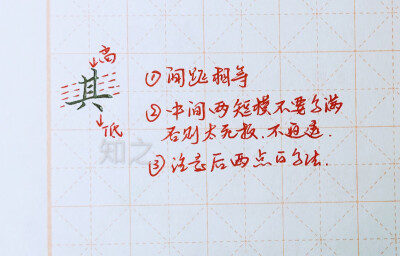 高
其
低
①间距相等
②中间两短横不要写满
否则太死板、不通透.
③注意后两点的写法.
知乎